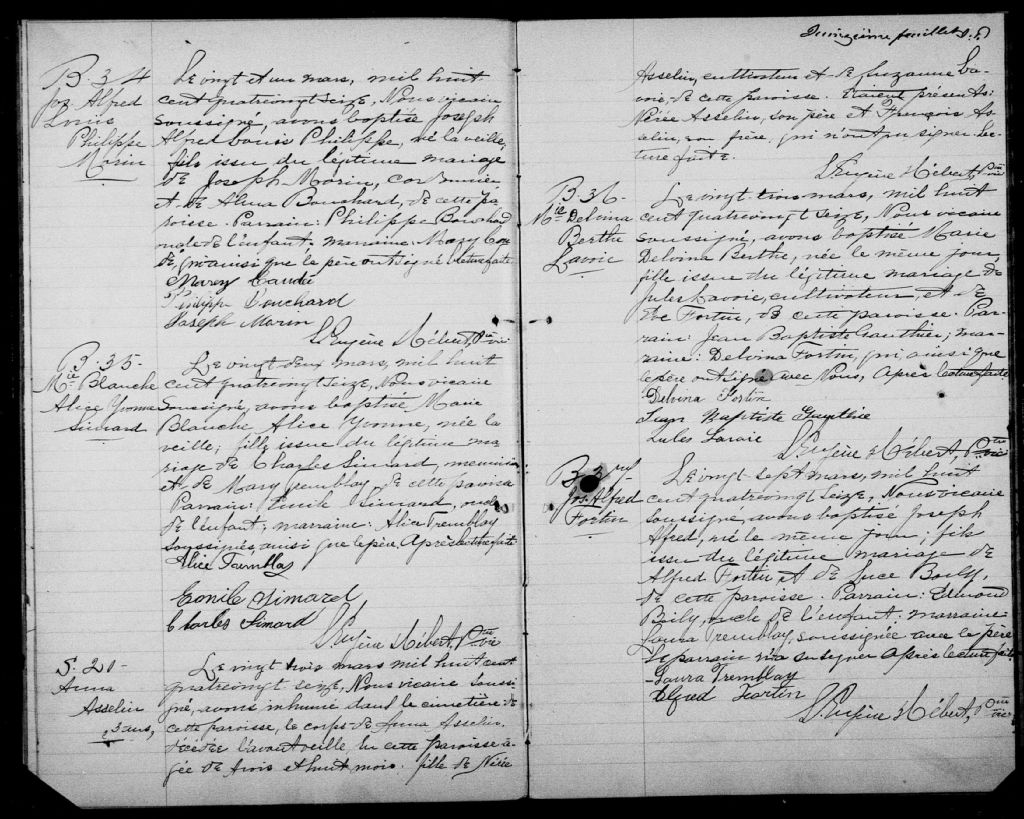 B. 34
Jos Alfred
Louis
Philippe
Morin
Le vingt et un mars, mil huit
cent quatrevingt seize, Nous vicaire
soussigné, avons baptisé Joseph
Alfred Louis Philippe, né la veille,
fils issu du légitime mariage
de Joseph Morin, cordonnier
et de Alma Bouchard, de cette pa-
roisse. Parrain: Philippe Bouchard
oncle de l'enfant. marraine: Mary
qui ainsi que le père ont signé lecture faite
Mary
Philippe Bouchard
Joseph Morin
Eugène Hébert, Ptre vic
B. 35-
Mie Blanche
Alice Yvonne
Simard
Le vingt deux mars, mil huit
cent quatrevingt seize, Nous vicaire
soussigné, avons baptisé Marie
Blanche Alice Yvonne, née la
veille; fille issue du légitime ma-
riage de Charles Simard, menuisier
et de Mary Tremblay de cette paroisse
Parrain: Emile Simard, oncle
de l'enfant; marraine: Alice Tremblay
soussignés ainsi que le père, Après lecture faite
Alice Tremblay
Emile Simard
Charles Simard
Eugène Hébert, Ptre vic
S. 20-
Anna
Asselin
3 ans,
Le vingt trois mars mil huit cent
quatrevingt seize, Nous vicaire soussi-
gné, avons inhumé dans le cimetière de
cette paroisse, le corps de Anna Asselin
décédée l'avant veille, en cette paroisse â-
gée de trois et huit mois. fille de Nérée
Quinzième feuillet
Asselin, cultivateur et de Suzanne La-
voie, de cette paroisse. Etaient présents:
Nérée Asselin, son père et François As-
selin, son frère, qui n'ont pu signer. lec-
ture faite.
Eugène Hébert, Ptre vic
B. 36-
Mie Delvina
Berthe
Lavoie
Le vingt trois mars, mil huit
cent quatrevingt seize, Nous vicaire
soussigné, avons baptisé Marie
Delvina Berthe, née le même jour,
fille issue du légitime mariage de
Jules Lavoie, cultivateur, et de
Fortin, de cette paroisse. Par-
rain: Jean Baptiste Gauthier; mar-
raine: Delvina Fortin, qui ainsi que
le père ont signé avec Nous, Après lecture faite
Delvina Fortin
Jean Baptiste Gauthier
Jules Lavoie
Eugène Hébert, Ptre vic
B. 37-
Jos. Alfred
Fortin
Le vingt sept mars, mil huit
cent quatrevingt seize, Nous vicaire
soussigné, avons baptisé Joseph
Alfred, né le même jour; fils
issu du légitime mariage de
Alfred Fortin et de Luce Boily,
de cette paroisse. Parrain: Edmond
Boily, oncle de l'enfant: marraine:
Laura Tremblay, soussignée avec le père
le parrain n'a su signer Après lecture faite
Laura Tremblay
Alfred Fortin
Eugène Hébert, Ptre vic